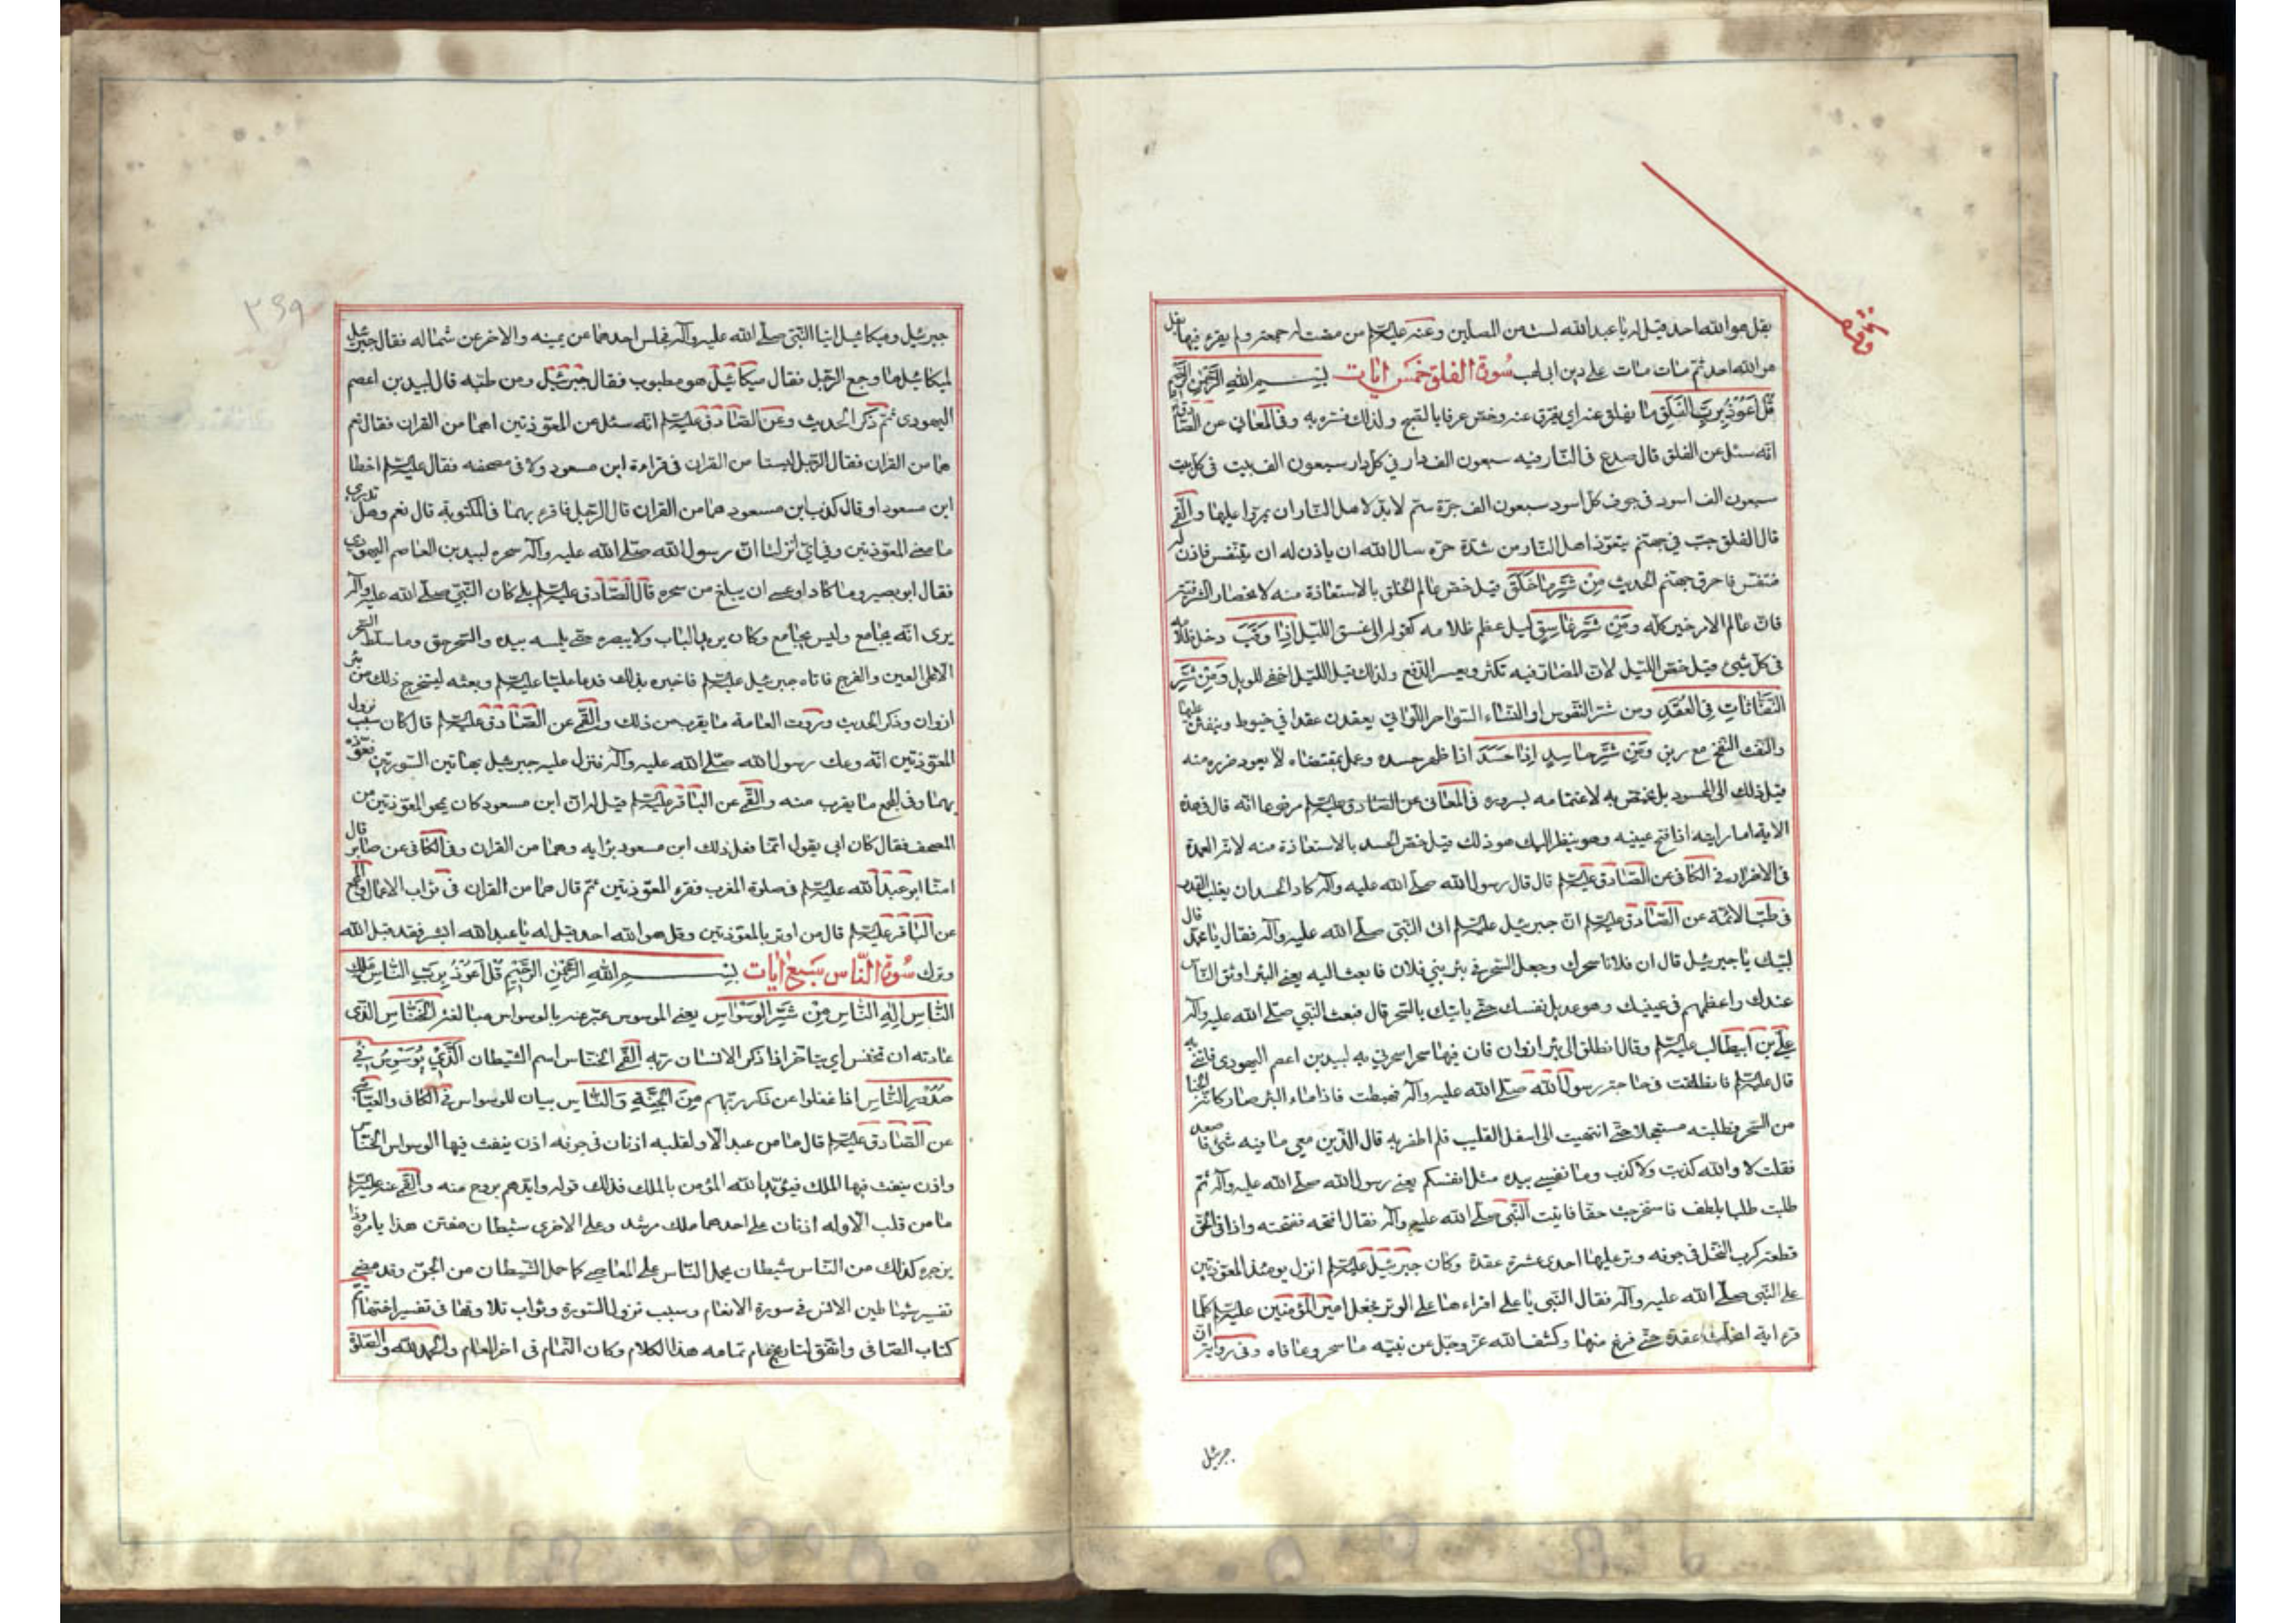 يقل هو الله احد قيل له يا عبدالله لست من المصلين وعنه عليه السلم من مضت له جمعة ولم يقرء فيها بقل
هو الله احد ثم مات مات على دين ابى لهب سورة الفلق خمس ايات بسم الله الرحمن الرحيم
قل اعوذ برب الفلق ما يفلق عنه اى يفرق عنه وخص عرفا بالصبح ولذلك فسر به وفى المعانى عن الصادق
انه سئل عن الفلق قال صدع فى النار فيه سبعون الف دار فى كل دار سبعون الف بيت فى كل بيت
سبعون الف اسود فى جوف كل اسود سبعون الف جرة سم لا بد لاهل النار ان يمروا عليها والقمى
قال الفلق جب فى جهنم يتعوذ اهل النار من شدة حره سال الله ان ياذن له ان يتنفس فاذن له
فتنفس فاحرق جهنم الحديث من شر ما خلق قيل خص عالم الخلق بالاستعاذة منه لانحصار الشر فيه
فان عالم الامر خير كله ومن شر غاسق ليل عظم ظلامه كقوله الى غسق الليل اذا وقب دخل ظلامه
فى كل شئ قيل خص الليل لان المضار فيه تكثر ويعسر الدفع ولذلك قيل الليل اخفى للويل ومن شر
النفاثات فى العقد ومن شر النفوس او النساء السواحر اللواتى يعقدن عقدا فى خيوط وينفثن عليها
والنفث النفخ مع ريق ومن شر حاسد اذا حسد اذا ظهر حسده وعمل بمقتضاه لا يعود ضرره منه
قبل ذلك الى المحسود بل يختص به لاغتمامه بسروره فى المعانى عن الصادق عليه السلم مرفوعا انه قال فى هذه
الاية اما رايته اذا فتح عينيه وهو ينظر اليك هو ذلك قيل خص الحسد بالاستعاذة منه لانه العمدة
فى الاضرار فى الكافى عن الصادق عليه السلم قال قال رسول الله صلى الله عليه وآله كاد الحسد ان يغلب القدر
فى طب الائمة عن الصادق عليه السلم ان جبرئيل عليه السلم اتى النبى صلى الله عليه وآله فقال يا محمد قال
لبيك يا جبرئيل قال ان فلانا سحرك وجعل السحر فى بئر بنى فلان فابعث اليه يعنى البئر اوثق الناس
عندك واعظمهم فى عينيك وهو عديل نفسك حتى ياتيك بالسحر قال فبعث النبى صلى الله عليه وآله
على بن ابيطالب عليه السلم وقال انطلق الى بئر ازوان فان فيها سحرا سحرنى به لبيد بن اعصم اليهودى فاتنى به
قال عليه السلم فانطلقت فى حاجة رسول الله صلى الله عليه وآله فهبطت فاذا ماء البئر صار كانه الحنا
من السحر فطلبته مستعجلا حتى انتهيت الى اسفل القليب فلم اظفر به قال الذين معى ما فيه شئ فاصعد
فقلت لا والله كذبت ولا كذب وما نفسى بيده مثل انفسكم يعنى رسول الله صلى الله عليه وآله ثم
طلبت طلبا بلطف فاستخرجت حقا فاتيت النبى صلى الله عليه وآله فقال افتحه ففتحته واذا فى الحق
قطعة كرب النخل فى جوفه وتر عليها احدى عشرة عقدة وكان جبرئيل عليه السلم انزل يومئذ المعوذتين
على النبى صلى الله عليه وآله فقال النبى يا على اقراءهما على الوتر فجعل امير المؤمنين عليه السلم كلما
قرء اية انحلت عقدة حتى فرغ منها وكشف الله عز وجل عن نبيه ما سحر وعافاه وفى رواية ان
جبرئيل
جبرئيل وميكائيل اتيا النبى صلى الله عليه وآله فجلس احدهما عن يمينه والاخر عن شماله فقال جبرئيل
لميكائيل ما وجع الرجل فقال ميكائيل هو مطبوب فقال جبرئيل ومن طبه قال لبيد بن اعصم
اليهودى ثم ذكر الحديث وعن الصادق عليه السلم انه سئل عن المعوذتين اهما من القران فقال نعم
هما من القران فقال الرجل ليستا من القران فى قراءة ابن مسعود ولا فى مصحفه فقال عليه السلم اخطا
ابن مسعود او قال كذب ابن مسعود هما من القران قال الرجل فاقرء بهما فى المكتوبة قال نعم وهل تدرى
ما معنى المعوذتين وفى اى شئ انزلتا ان رسول الله صلى الله عليه وآله سحره لبيد بن العاصم اليهودى
فقال ابو بصير وما كاد او عسى ان يبلغ من سحره قال الصادق عليه السلم بلى كان النبى صلى الله عليه وآله
يرى انه يجامع وليس يجامع وكان يريد الباب ولا يبصره حتى يلمسه بيده والسحر حق وما سلط السحر
الا على العين والفرج فاتاه جبرئيل عليه السلم فاخبره بذلك فدعا عليا عليه السلم وبعثه ليستخرج ذلك من بئر
ازوان وذكر الحديث وروت العامة ما يقرب من ذلك والقمى عن الصادق عليه السلم قال كان سبب نزول
المعوذتين انه وعك رسول الله صلى الله عليه وآله فنزل عليه جبرئيل بهاتين السورتين فعوذه
بهما وفى المجمع ما يقرب منه والقمى عن الباقر عليه السلم قيل له ان ابن مسعود كان يمحو المعوذتين من
المصحف فقال كان ابى يقول انما فعل ذلك ابن مسعود برايه وهما من القران وفى الكافى عن صابر قال
امنا ابو عبدالله عليه السلم فى صلوة المغرب فقرء المعوذتين ثم قال هما من القران فى ثواب الاعمال والمجمع
عن الباقر عليه السلم قال من اوتر بالمعوذتين وقل هو الله احد قيل له يا عبدالله ابشر فقد قبل الله
وترك سورة الناس سبع ايات بسم الله الرحمن الرحيم قل اعوذ برب الناس ملك
الناس اله الناس من شر الوسواس يعنى الموسوس عبر عنه بالوسواس مبالغة الخناس الذى
عادته ان يخنس اى يتاخر اذا ذكر الانسان ربه القمى الخناس اسم الشيطان الذى يوسوس فى
صدور الناس اذا غفلوا عن ذكر ربهم من الجنة والناس بيان للوسواس فى الكافى والعياشى
عن الصادق عليه السلم قال ما من عبد الا ولقلبه اذنان فى جوفه اذن ينفث فيها الوسواس الخناس
واذن ينفث فيها الملك فيؤيد الله المؤمن بالملك فذلك قوله وايدهم بروح منه والقمى عنه عليه السلم
ما من قلب الا وله اذنان على احدهما ملك مرشد وعلى الاخرى شيطان مفتن هذا يامره وذا
يزجره كذلك من الناس شيطان يحمل الناس على المعاصى كما حمل الشيطان من الجن وقد مضى
تفسير شياطين الانس فى سورة الانعام وسبب نزول السورة وثواب تلاوتها فى تفسير اختها تم
كتاب الصافى واتفق لتاريخ عام تمامه هذا الكلام وكان التمام فى اخر العام والحمد لله والصلوة